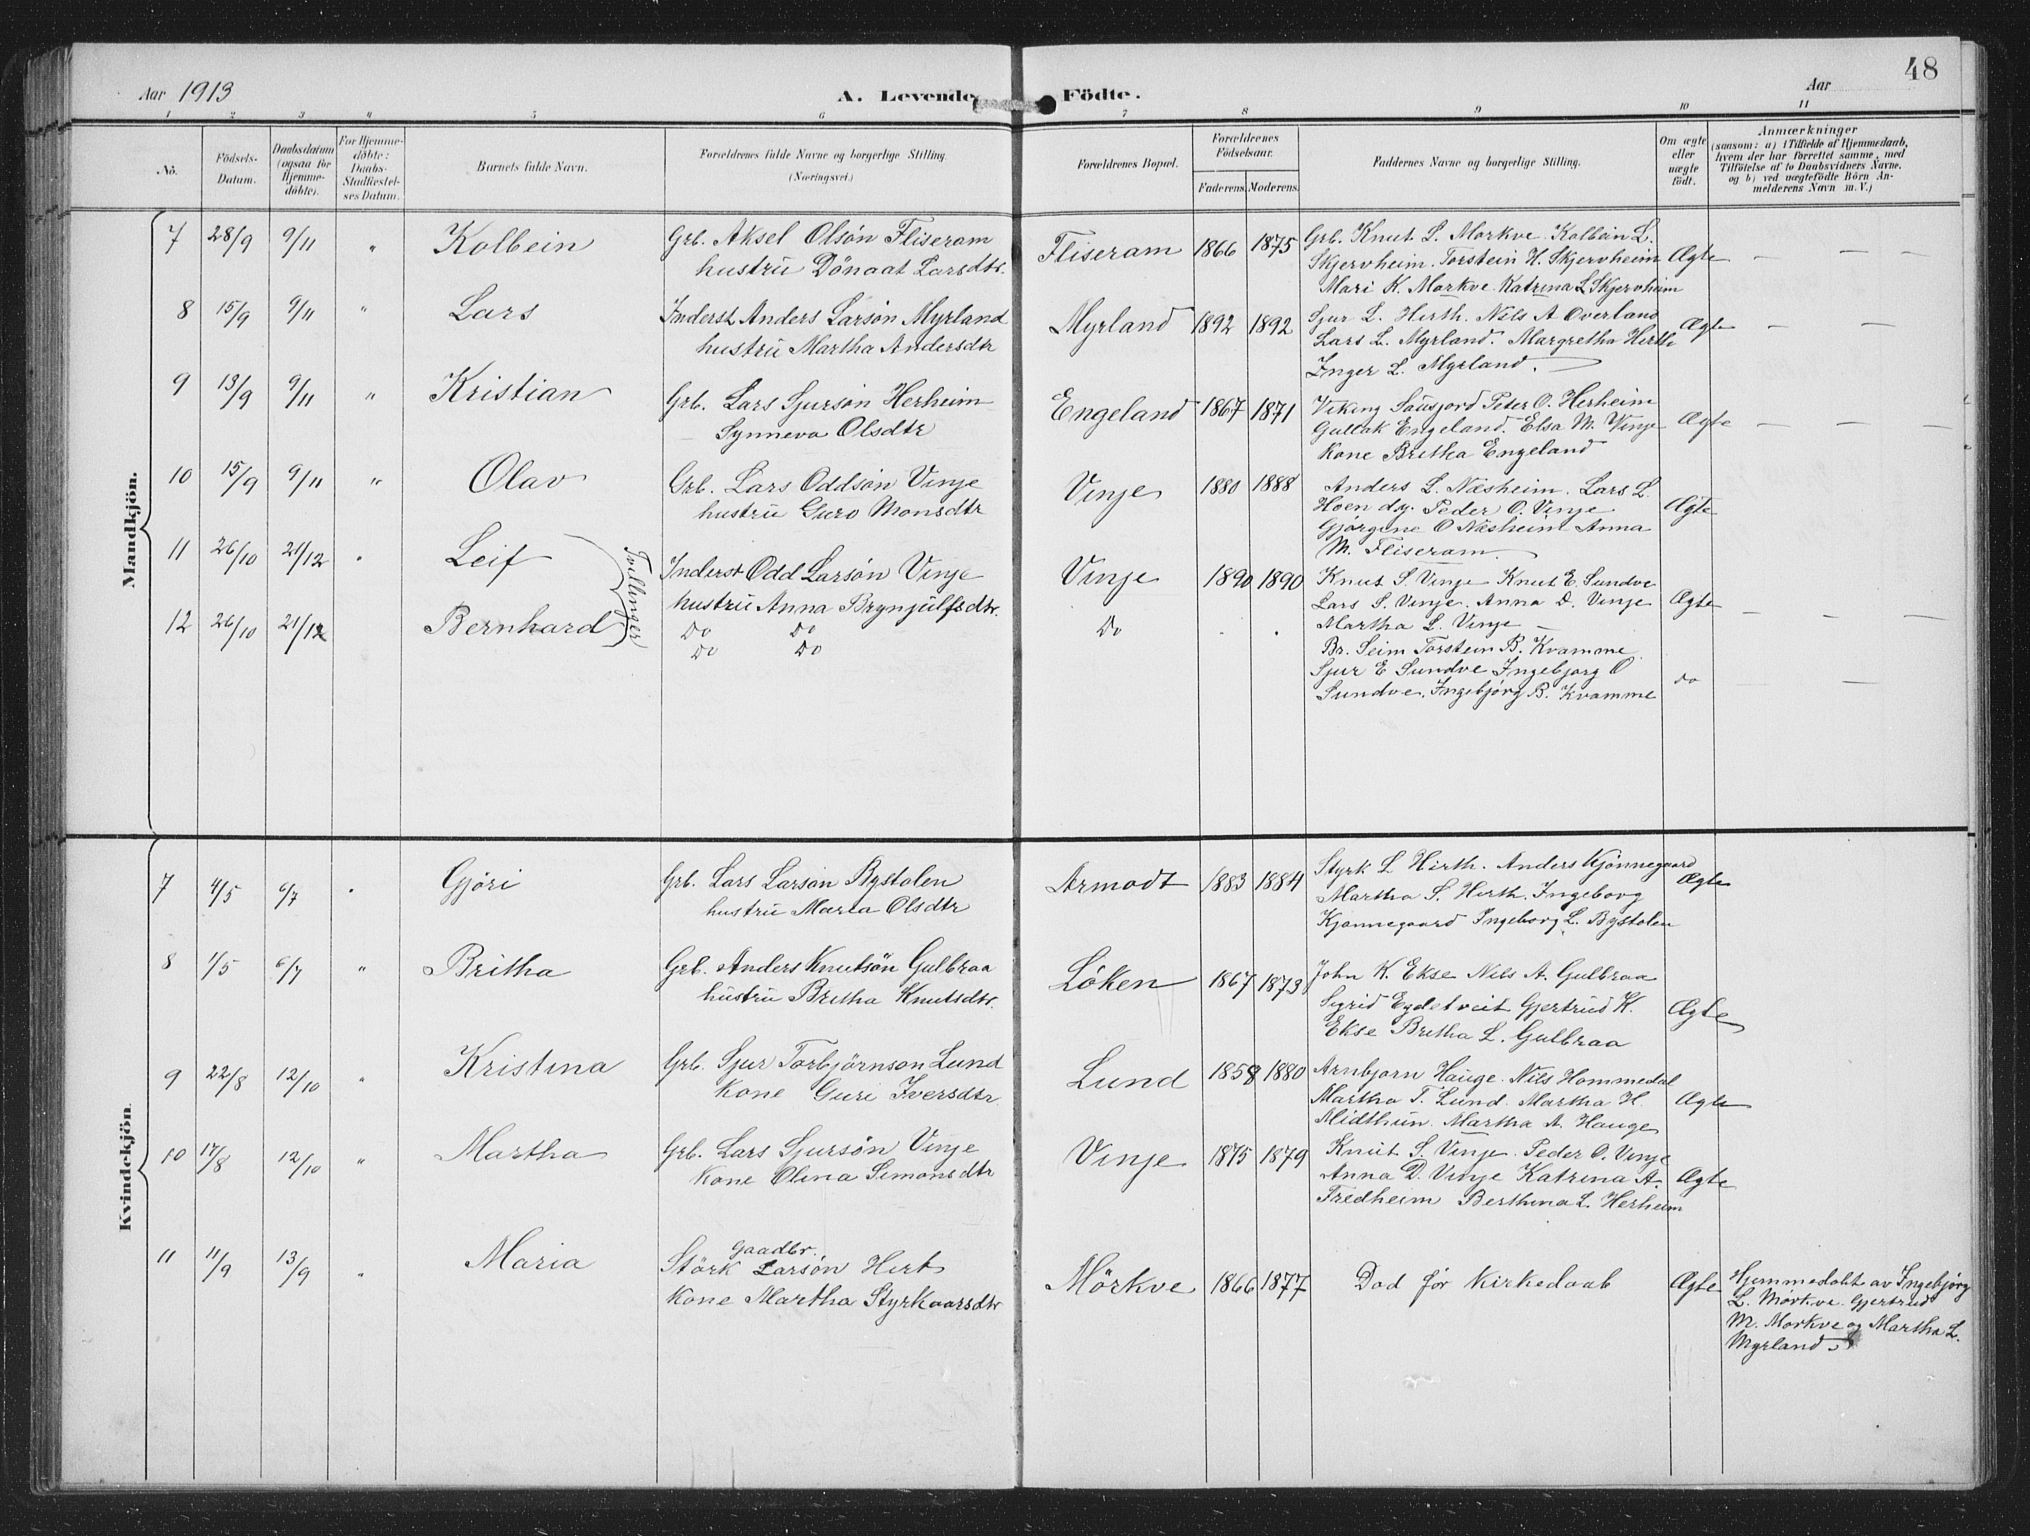 48
Aar 1913
A. Levende Födte.
Aar
1 2 3 4 5 6 7 8 9 10 11
No.
Födsels-
Datum.
Daabsdatum
(ogsaa for
Hjemme-
döbte).
For Hjemme-
döbte:
Daabs-
Stadfæstel-
ses Datum.
Barnets fulde Navn.
Forældrenes fulde Navne og borgerlige Stilling.
(Næringsvei.)
Forældrenes Bopæl.
Forældrenes
Födselsaar.
Faderens. Moderens.
Faddernes Navne og borgerlige Stilling.
Om ægte
eller
uægte
födt.
Anmærkninger
(saasom: a) i Tilfælde af Hjemmedaab,
hvem der har forrettet samme, med
Tilföielse af to Daabsvidners Navne.
og b) ved uægtefödte Börn An-
melderens Navn m. V.)
Mandkjön.
7 28/9 9/11 " Kolbein
Grb. Aksel Olsön Fliseram
hustru Dönaat Larsdtr.
Fliseram 1866 1875
Grb. Knut L. Mørkve. Kolbein L.
Skjervheim. Torstein H. Skjervheim
Mari K. Mørkve. Katrina L Skjervheim
Ægte — — —
8 15/9 9/11 " Lars
Inderst Anders Larsön Myrland
hustru Martha Andersdtr
Myrland 1892 1892
Sjur L. Hirth. Nils A Overland
Lars L. Myrland. Margretha Herth
Inger L. Myrland.
Ægte — — —
9 13/9 9/11 " Kristian
Grb. Lars Sjursön Herheim
Synneva Olsdtr
Engeland 1867 1871
Viking Sausjord Peter O. Herheim
Gullak Engeland. Elsa M. Vinje
Kone Britha Engeland
Ægte — — —
10 15/9 9/11 " Olav
Grb. Lars Oddsön Vinje
hustru Guro Monsdtr
Vinje 1880 1888
Anders L. Næsheim. Lars L.
Hoen d.y. Peder O. Vinje
Gjørgine O Næsheim Anna
M. Fliseram.
Ægte
11 26/10 21/12 " Leif
Tvillinger
Inderst Odd Larsön Vinje
hustru Anna Brynjulfsdtr.
Vinje 1890 1890
Knut S. Vinje Knut E. Sundve
Lars S. Vinje. Anna D. Vinje
Martha L. Vinje —
Ægte — — —
12 26/10 21/12 Bernhard
Do Do
Do Do
Do . .
Br. Seim Torstein B. Kvamme.
Sjur E Sundve Ingebjorg O
Sundve. Ingebjörg B. Kvamme
do —
Kvindekjön.
7 4/5 6/7 " Gjöri
Grb. Lars Larsön Bystolen
hustru Maria Olsdtr
Armodt 1883 1884
Styrk L Hirth. Anders Kjønnegaard
Martha S. Hirth. Ingeborg
Kjønnegaard Ingeborg L. Bystolen
Ægte
8 1/5 6/7 " Britha
Grb. Anders Knutsön Gulbraa
hustru Britha Knutsdtr.
Löken 1867 1873
John K. Ekse Nils A. Gulbraa
Sigrid Egdetveit Gjertrud K.
Ekse Britha L. Gulbraa
Ægte
9 22/8 12/10 " Kristina
Grb. Sjur Torbjörnson Lund
Kone Guri Iversdtr.
Lund 1858 1880
Arnbjorn Hauge. Nils Hommedal
Martha T. Lund. Martha H.
Midthun. Martha A. Hauge
Ægte
10 17/8 12/10 " Martha
Grb. Lars Sjursön Vinje
Kone Olina Simonsdtr
Vinje 1875 1879
Knut S. Vinje. Peder O. Vinje
Anna D. Vinje Katrina A.
Fredheim Berthina L. Herheim
Ægte
11 11/9 13/9 " Maria
Gaadbr.
Störk Larsön Hirt
Kone Martha Styrkaarsdtr
Mörkve 1866 1877
Död før Kirkedaab
Ægte
Hjemmedøbt av Ingebjørg
L. Mörkve. Gjertrud
M. Mørkve og Martha L.
Myrland.